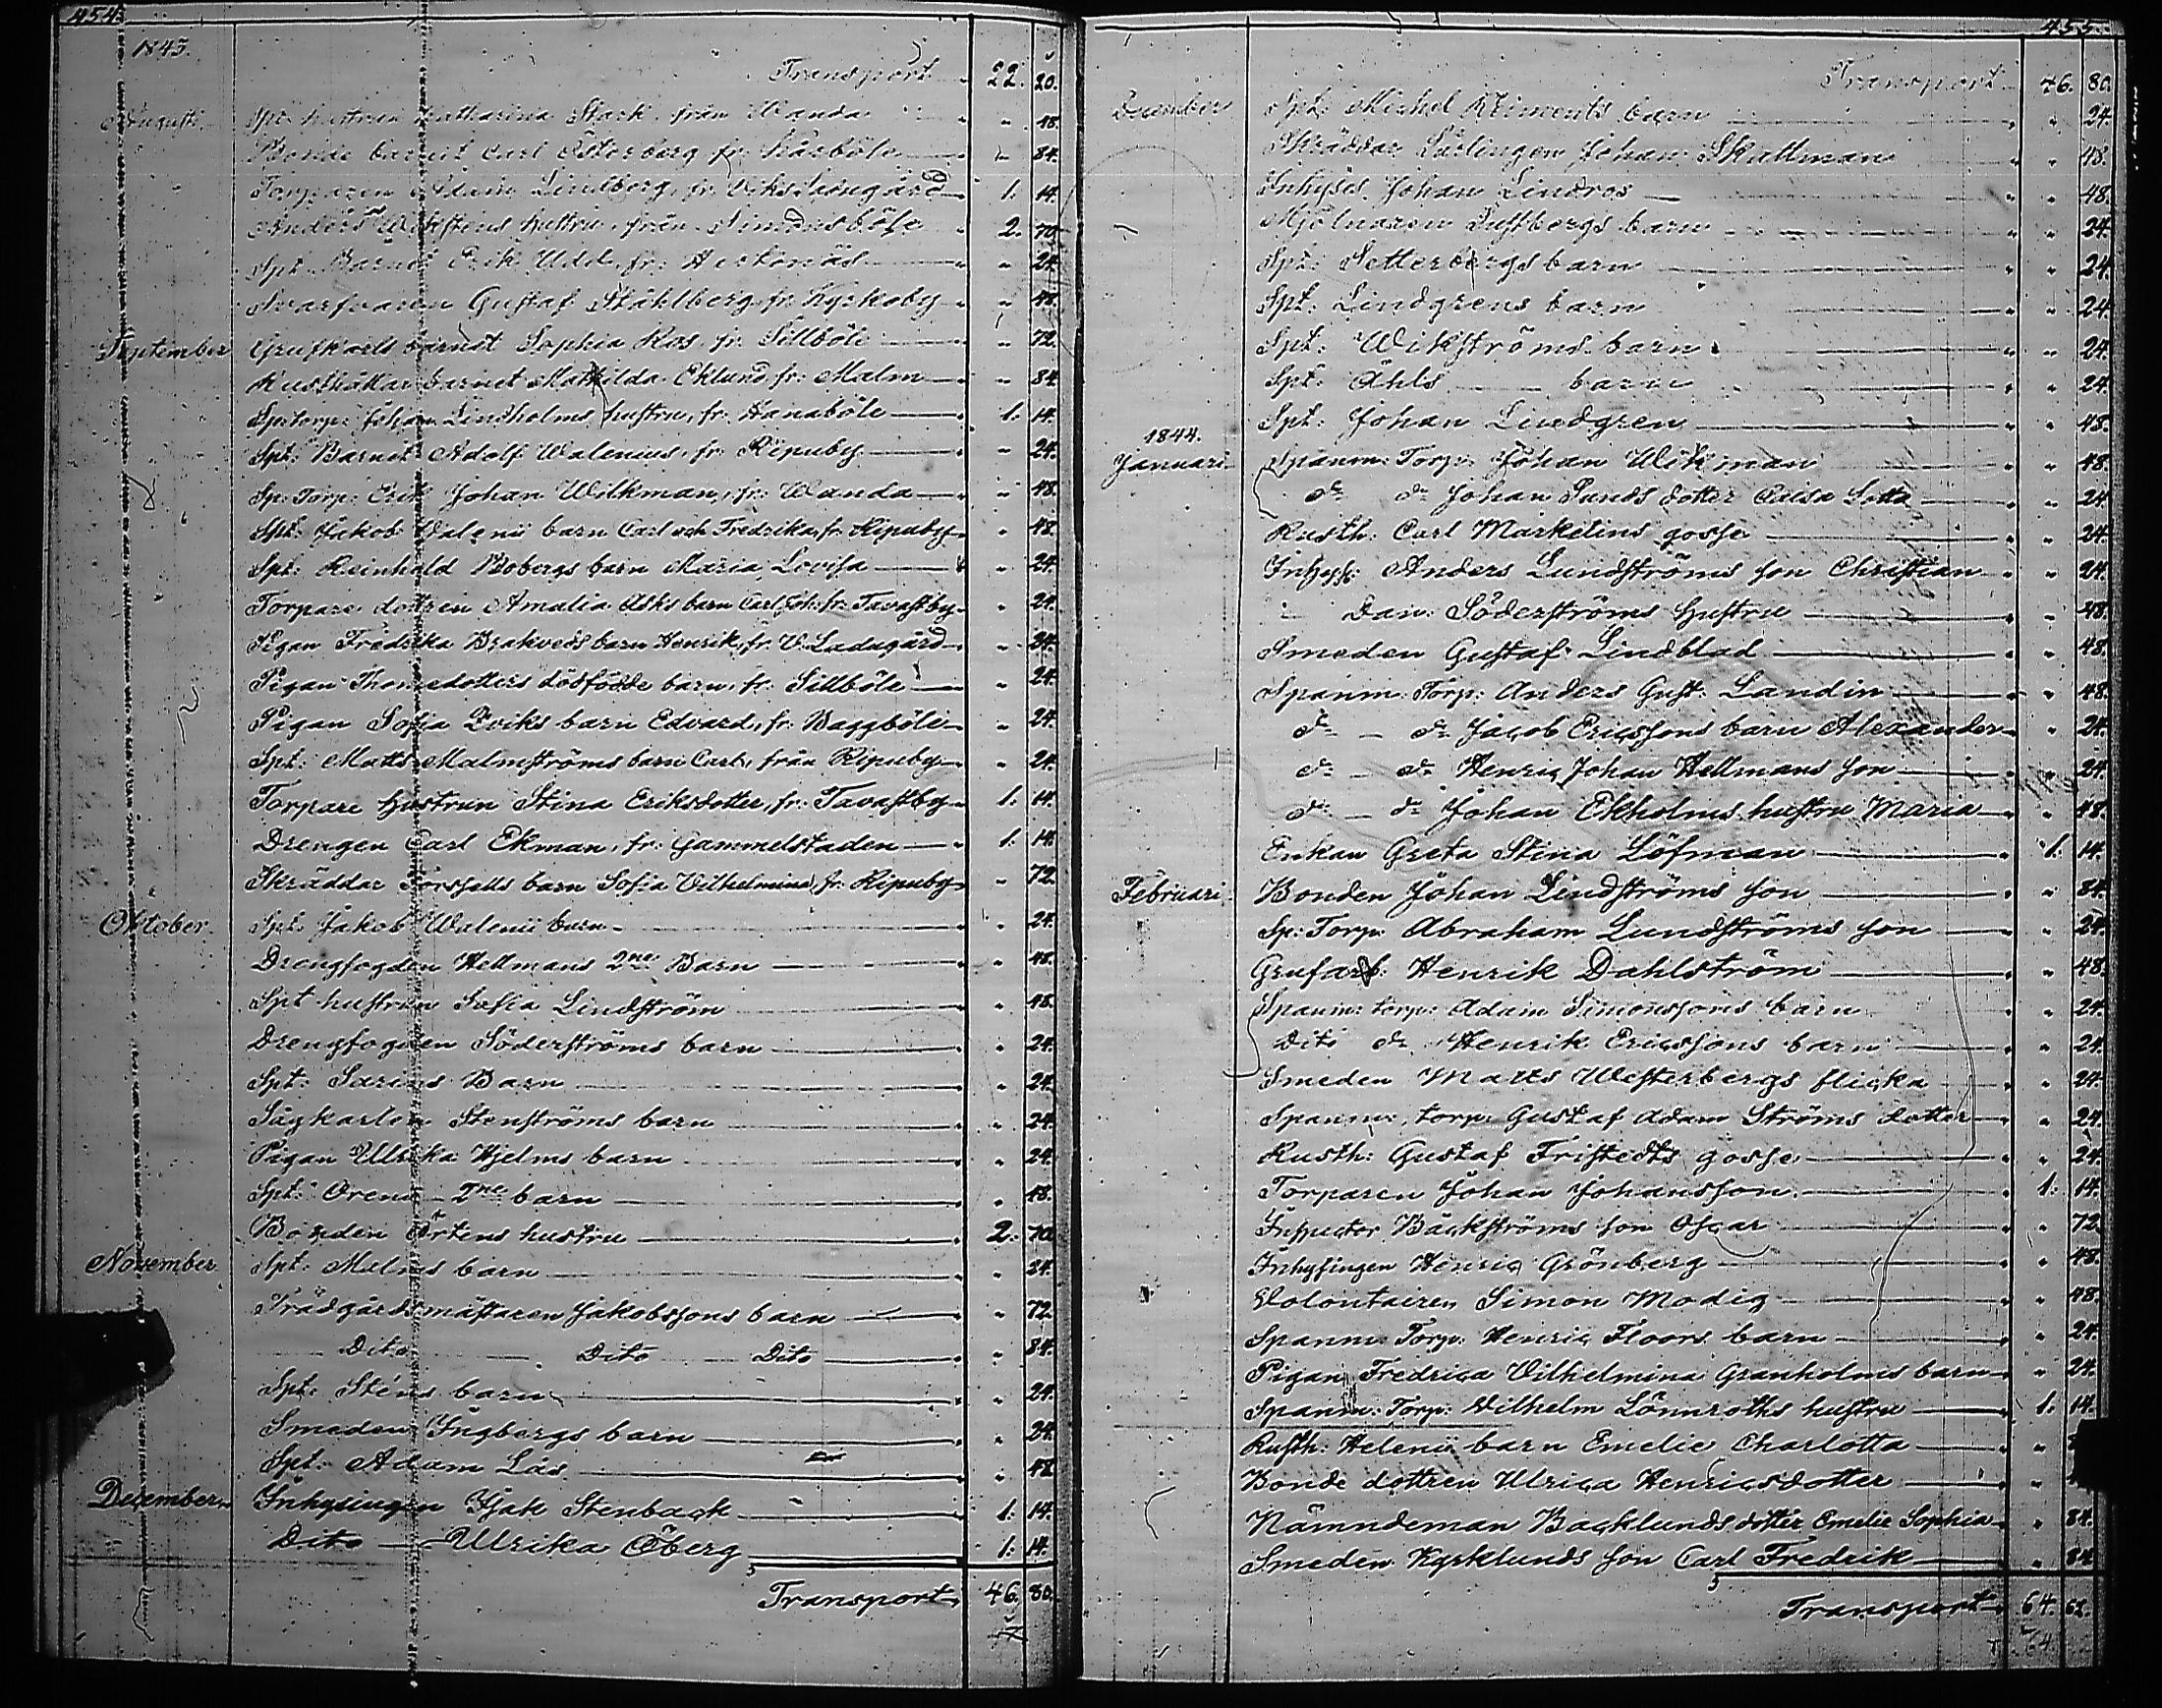 454.
1843.
Transport 22. 20.
Augusti. Spt. hustrun Katharina Stark från Wanda " 48.
Bonde barnet Carl Österberg fr. Kårböle " 84.
Torparen Adam Lindberg, fr. Viks Kongård 1. 14.
Anders Wikstens hustru, från Simonsböle 2. 70.
Spt. Barnet Erik Udd, fr. Hertonäs " 24.
Svarfvaren Gustaf Ståhlberg, fr. Kyrkoby " 48.
September Grufkarls barnet Sophia Ros, fr. Sillböle " 72.
Rusthållar barnet Mathilda Eklund, fr. Malm " 84.
Sp: torp: Johan Lindholms hustru, fr. Hanaböle 1. 14.
Spt: Barnet Adolf Walenius, fr. Ripuby " 24.
Sp: Torp: Erik Johan Wilkman, fr. Wanda " 48.
Spt. Jakob Valenii barn Carl och Fredrika, fr. Ripuby " 48.
Spt: Reinhold Bobergs barn Maria Lovisa " 24.
Torpare dottren Amalia Asks barn Carl Joh: fr. Tavastby " 24.
Pigan Fredrika Brakveds barn Henrik, fr. V. Ladugård " 24.
Pigan Thomedotters dödfödde barn, fr. Sillböle " 24.
Pigan Sofia Eviks barn Edvard, fr. Baggböle " 24.
Spt: Matts Malmströms barn Carl, från Ripuby " 24.
Torpare hustrun Stina Eriksdotter, fr. Tavastby 1. 14.
Drengen Carl Ekman, fr. Gammelstaden 1. 14.
Skräddar Forssells barn Sofia Vilhelmina, fr. Ripuby " 72.
Oktober. Spt. Jakob Walenii barn " 24.
Drengfogden Hellmans 2ne Barn " 48.
Spt hustrun Sofia Lindström " 48.
Drengfogden Söderströms barn " 24.
Spt: Sarins Barn " 24.
Sågkarlen Stenströms barn " 24.
Pigan Ulrika Hjelms barn " 24.
Spt: Orenii 2ne barn " 48.
Bonden Örtens hustru 2. 70.
November Spt. Malms barn " 24.
Trädgårdsmästaren Jakobssons barn " 72.
Dito Dito Dito " 84.
Spt: Sténs barn " 24.
Smeden Ingbergs barn " 24.
Spt. Adam Lås " 48.
December. Inhysingen Isak Stenback 1. 14.
Dito Ulrika Öberg 1. 14.
Transport 46. 80.
455.
Transport 46. 80.
December Spt: Michel Kliments barn " 24.
Skräddar Lärlingen Johan Skallman " 48.
Inhyses Johan Lindros " 48.
Mjölnaren Luftbergs barn " 24.
Spt: Setterbergs barn " 24.
Spt. Lindgrens barn " 24.
Spt: Wikströms barn " 24.
Spt: Åhls barn " 24.
Spt: Johan Lindgren " 48.
1844.
Januari Spanm: Torp: Johan Wikman " 48.
do do Johan Lunds dotter Caisa Lotta " 24.
Rusth: Carl Markelins gosse " 24.
Inhys: Anders Lundströms son Christian " 24.
" Dan: Söderströms hustru " 48.
Smeden Gustaf Lindblad " 48.
Spanm: Torp: Anders Gust: Landin " 48.
do do Jacob Ericssons barn Alexander " 24.
do do Henric Johan Hellmans son " 24.
do do Johan Ekholms hustru Maria " 48.
Enkan Greta Stina Löfman 1. 14.
Februari. Bonden Johan Lindströms son " 84.
Sp: Torp: Abraham Lundströms son " 24.
Grufarb: Henrik Dahlström " 48.
Spanm: torp: Adam Simonssons barn " 24.
Dito do Henrik Ericssons barn " 24.
Smeden Matts Westerbergs flicka " 24.
Spanm: torp: Gustaf Adam Ströms dotter " 24.
Rusth: Gustaf Fristedts gosse " 24.
Torparen Johan Johansson 1. 14.
Inspector Bäckströms son Oscar " 72.
Inhysingen Henric Grönberg " 48.
Volontairen Simon Modig " 48.
Spanm: Torp: Henric Floors barn " 24.
Pigan Fredrica Vilhelmina Granholms barn " 24.
Spanm: Torp: Vilhelm Lönnroths hustru 1. 14.
Rusth: Helenii barn Emelie Charlotta "
Bonde dottren Ulrica Henricsdotter "
Nämndeman Backlunds dotter Emelie Sophia " 84.
Smeden Kyrklunds son Carl Fredrik " 84.
Transport 64. 62.
64